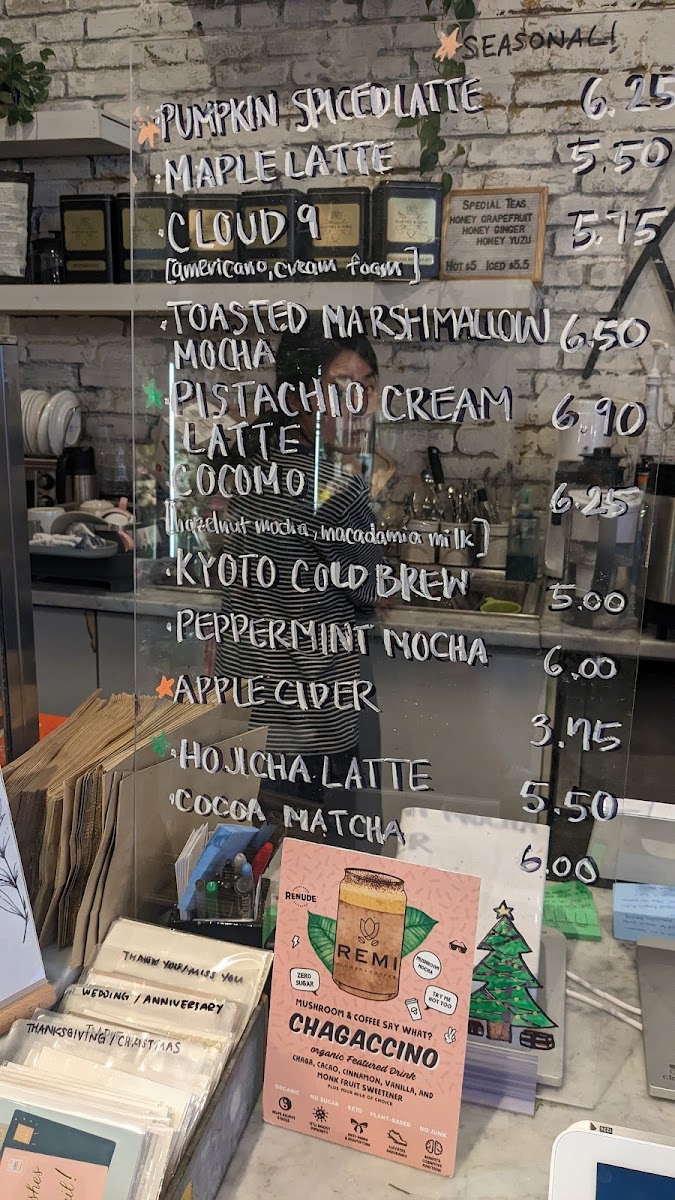 SEASONAL!
PUMPKIN SPICED LATTE 6.25
MAPLE LATTE 5.50
CLOUD 9 5.75
[americano, cream foam]
TOASTED MARSHMALLOW 6.50
MOCHA
PISTACHIO CREAM 6.90
LATTE
COCOMO 6.25
[hazelnut mocha, macadamia milk]
KYOTO COLD BREW 5.00
PEPPERMINT MOCHA 6.00
APPLE CIDER 3.75
HOJICHA LATTE 5.50
COCOA MATCHA 6.00
SPECIAL TEAS
HONEY GRAPEFRUIT
HONEY GINGER
HONEY YUZU
HOT $5 ICED $5.5
THANK YOU/MISS YOU
WEDDING / ANNIVERSARY
THANKSGIVING / CHRISTMAS
RENUDE
REMI
ZERO
SUGAR
MUSHROOM
MOCHA
TRY ME
HOT TOO!
MUSHROOM & COFFEE SAY WHAT?
CHAGACCINO
organic Featured Drink
CHAGA, CACAO, CINNAMON, VANILLA, AND
MONK FRUIT SWEETENER
PLUS YOUR MILK OF CHOICE
ORGANIC NO SUGAR KETO PLANT-BASED NO JUNK